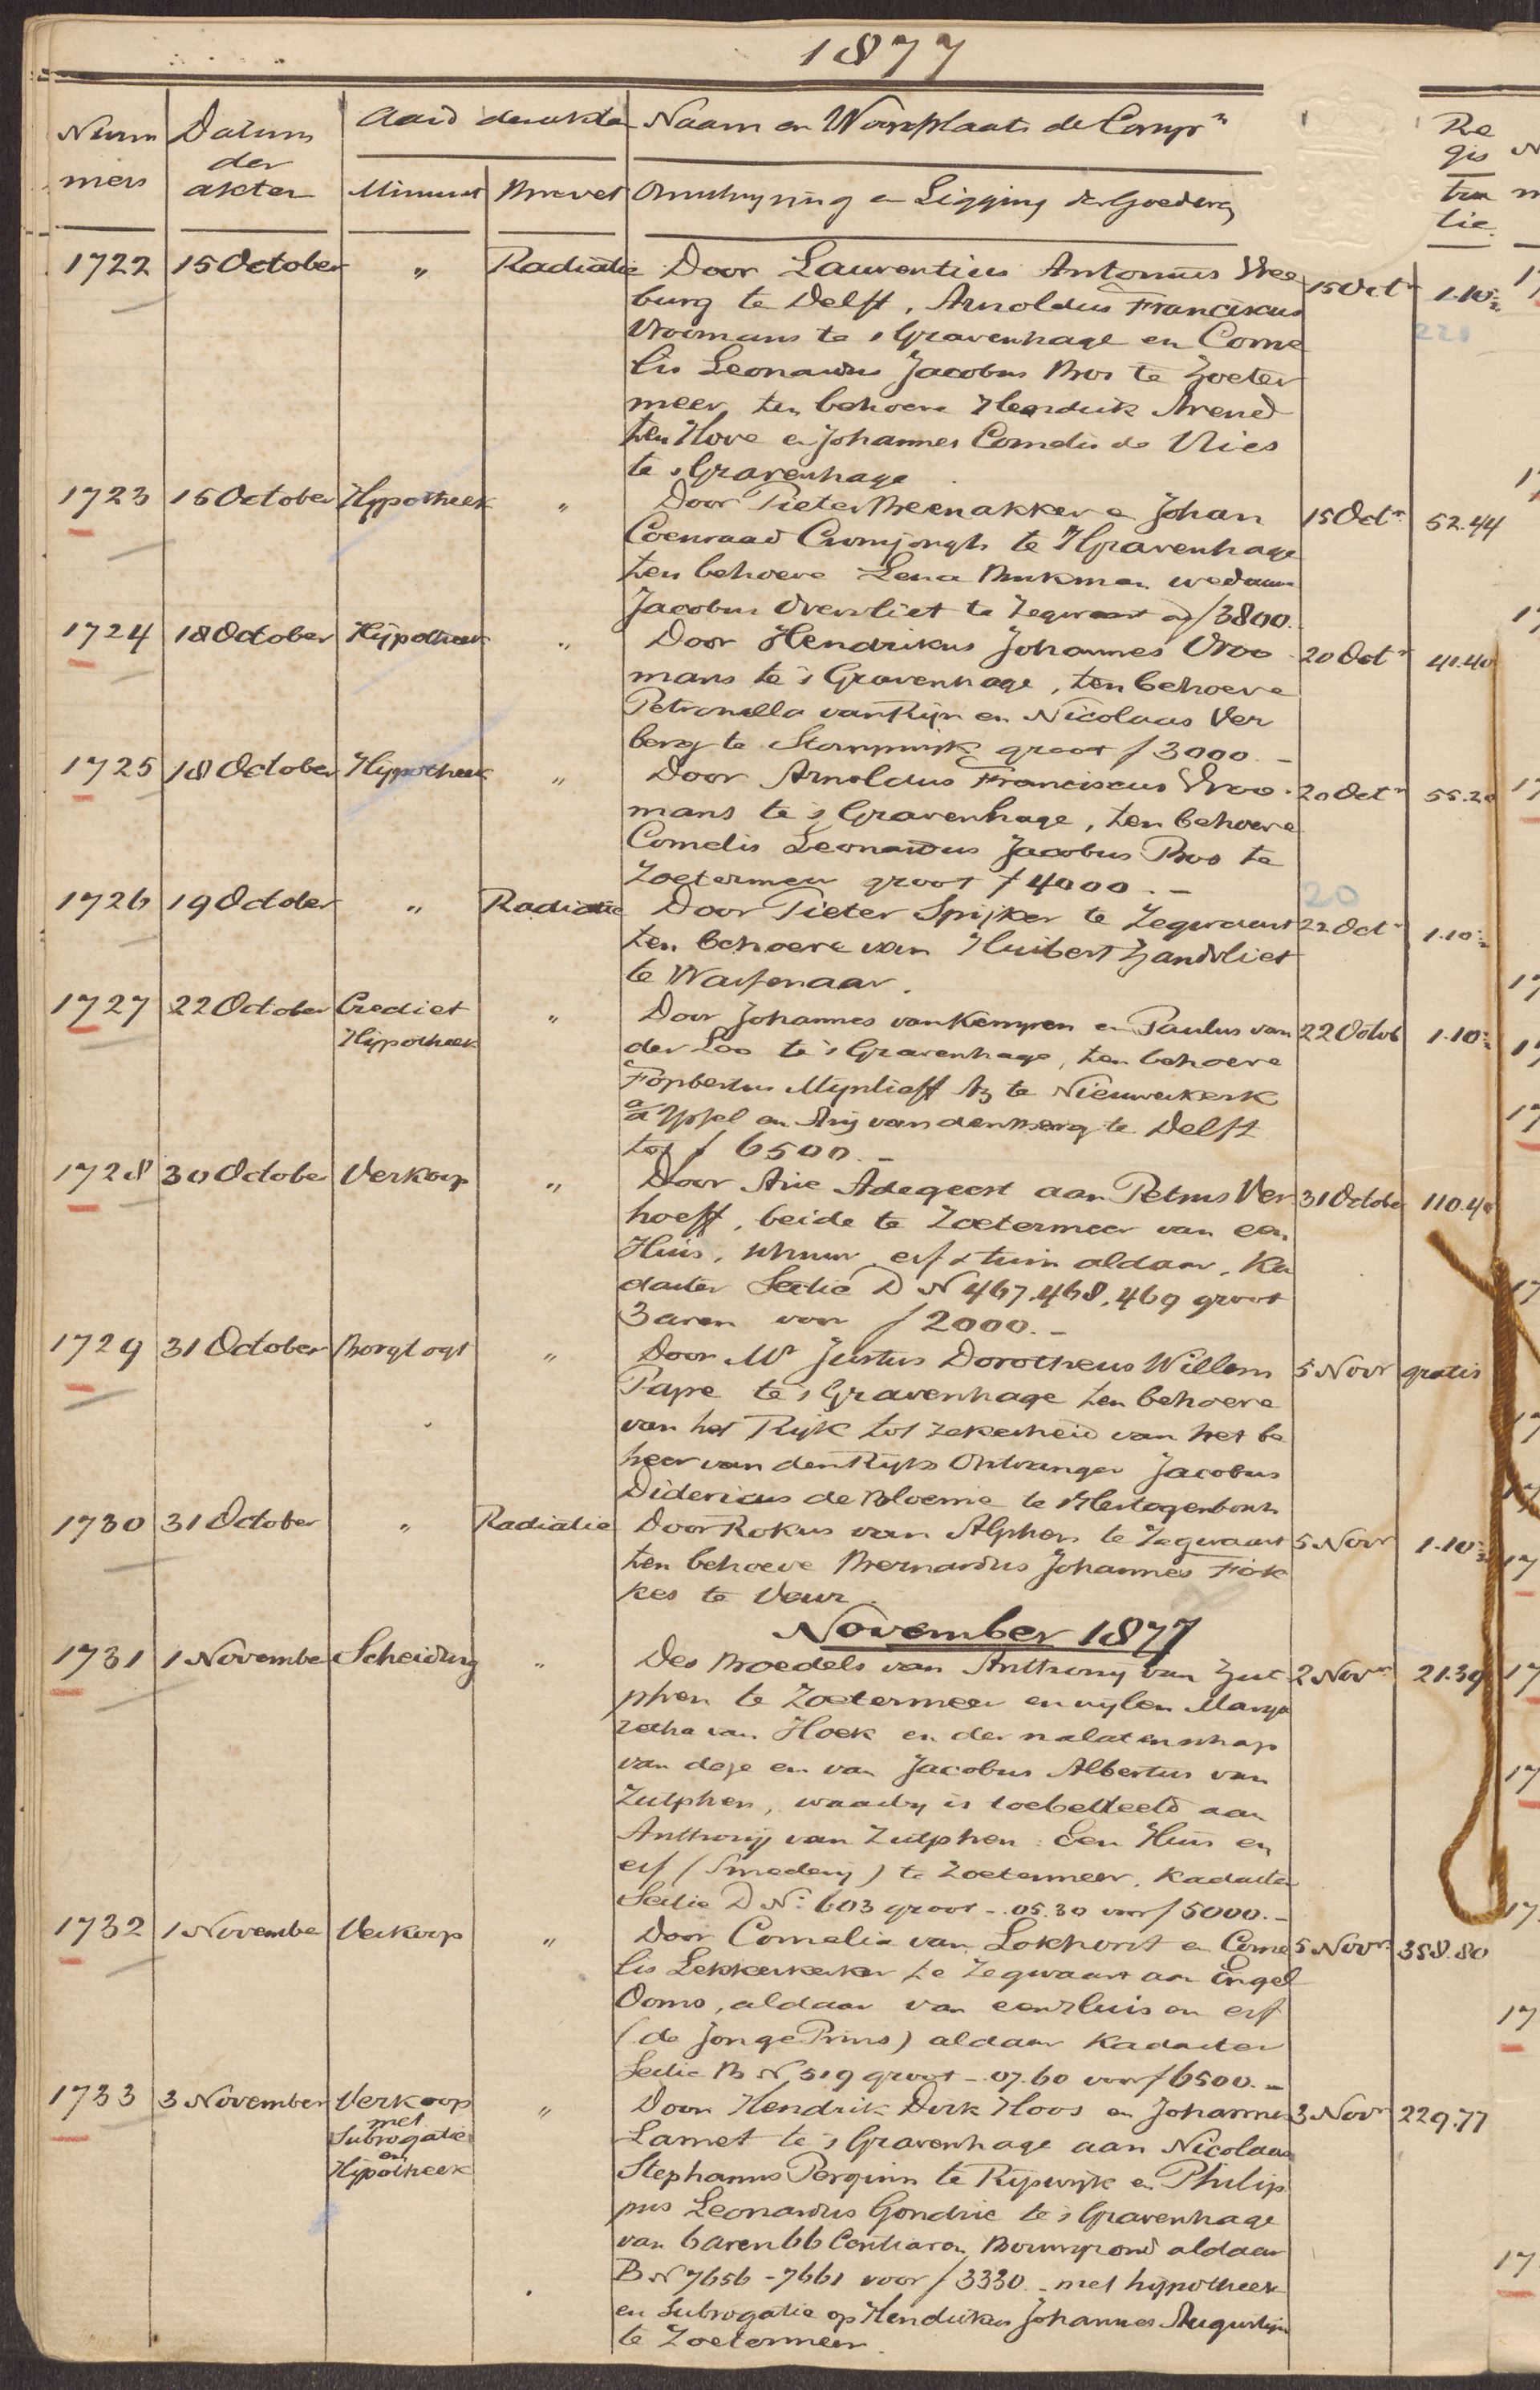 1877
Nummers Datum der akten Aard der akten Naam en Woonplaats de Compn Re gis tra tie
Minuut Brevet Omschrijving en Ligging der Goederen
1722 15 October " Radiatie Door Laurentius Antonius Vree 15 Octr 1.10½
burg te Delft, Arnoldus Franciscus
Vroomans te s Gravenhage en Corne
lis Leonardus Jacobus Bos te Zoeter
meer, ten behoeve Hendrik Arend
ten Hove en Johannes Cornelis de Vries
te s Gravenhage
1723 15 October Hypotheek " Door Pieter Beenakker en Johan 15 Octr 52.44
Coenraad te s Gravenhage
ten behoeve Lena weduwe
Jacobus Overvliet te Zegwaart ad f 3800.
1724 18 October Hypotheek " Door Hendrikus Johannes Vroo 20 Octr 41.40
mans te s Gravenhage, ten behoeve
Petronella van Rijn en Nicolaas Ver
berg te Stompwijk groot f 3000.-
1725 18 October Hypotheek " Door Arnoldus Franciscus Vroo 20 Octr 55.20
mans te s Gravenhage, ten behoeve
Cornelis Leonardus Jacobus Bos te
Zoetermeer groot f 4000.-
1726 19 October " Radiatie Door Pieter Spijker te Zegwaart 22 Octr 1.10½
ten behoeve van Huibert Zandvliet
te Wassenaar.
1727 22 October Crediet Hypotheek " Door Johannes van Kempen en Paulus van 22 Octob 1.10½
der Loo te s Gravenhage, ten behoeve
Fopbertus Mijnlieff Az te Nieuwerkerk
a/d IJssel en Arij van den Berg te Delft
tot f 6500.-
1728 30 October Verkoop " Door Arie Adegeest aan Petrus Ver 31 October 110.40
hoeff, beide te Zoetermeer van een
Huis, schuur, erf & tuin aldaar, Ka
daster Sectie D N 467.468.469 groot
3 aren voor f 2000.-
1729 31 October Borgtogt " Door Mr Justus Dorotheus Willem 5 Novr gratis
Pape te s Gravenhage ten behoeve
van het Rijk tot zekerheid van het be
heer van den Rijks Ontvanger Jacobus
Didericus de Bloeme te s Hertogenbosch
1730 31 October " Radiatie Door Rokus van Alphen te Zegwaart 5 Novr 1.10½
ten behoeve Bernardus Johannes Fok
kes te Veur.
November 1877
1731 1 November Scheiding " Des Boedels van Anthony van Zut 2 Novr 21.39
phen te Zoetermeer en wijlen Marga
retha van Hoek en der nalatenschap
van deze en van Jacobus Albertus van
Zutphen, waarbij is toebedeeld aan
Anthonij van Zutphen: Een Huis en
erf (Smederij) te Zoetermeer, Kadaster
Sectie D No 603 groot -.05.30 voor f 5000.-
1732 1 November Verkoop " Door Cornelia van Lokhorst en Corne 5 Novr 358.80
lis Lekkerkerker te Zegwaart aan Engel
Ooms, aldaar van een Huis en erf
(de Jonge Prins) aldaar Kadaster
Sectie B N 519 groot -.07.60 voor f 6500.-
1733 3 November Verkoop met Subrogatie en Hypotheek " Door Hendrik Dirk Hoos en Johannes 3 Novr 229.77
Lamet te s Gravenhage aan Nicolaas
Stephanus Perquin te Rijswijk en Philip
pus Leonardus Gondrie te s Gravenhage
van 6 aren 66 Centiaren Bouwgrond aldaar
B N 7656 - 7661 voor f 3330.- met hypotheek
en Subrogatie op Hendrikus Johannes Augustijn
te Zoetermeer.